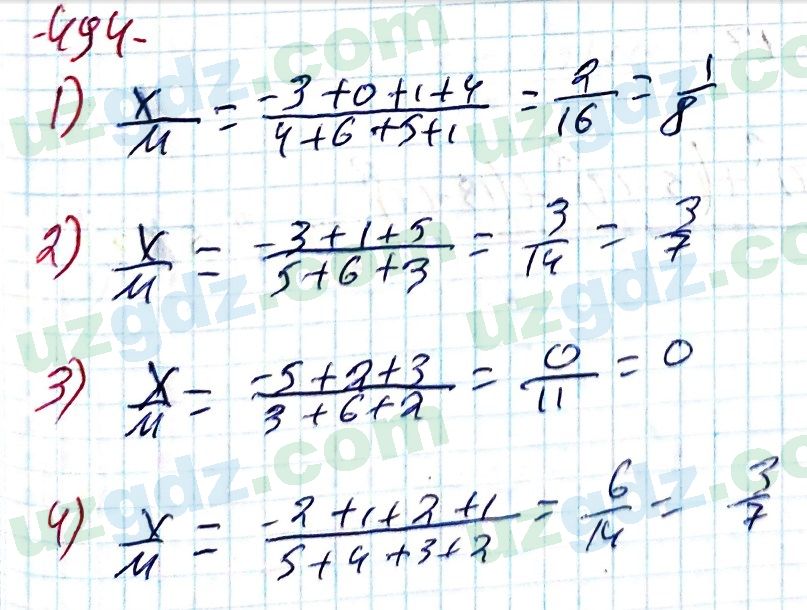 -494-
1) X/M = -3+0+1+4 / 4+6+5+1 = 2/16 = 1/8
2) X/M = -3+1+5 / 5+6+3 = 3/14 = 3/7
3) X/M = -5+2+3 / 3+6+2 = 0/11 = 0
4) X/M = -2+1+2+1 / 5+4+3+2 = 6/14 = 3/7
uzgdz.com
uzgdz.com
uzgdz.com
uzgdz.com
uzgdz.com
uzgdz.com